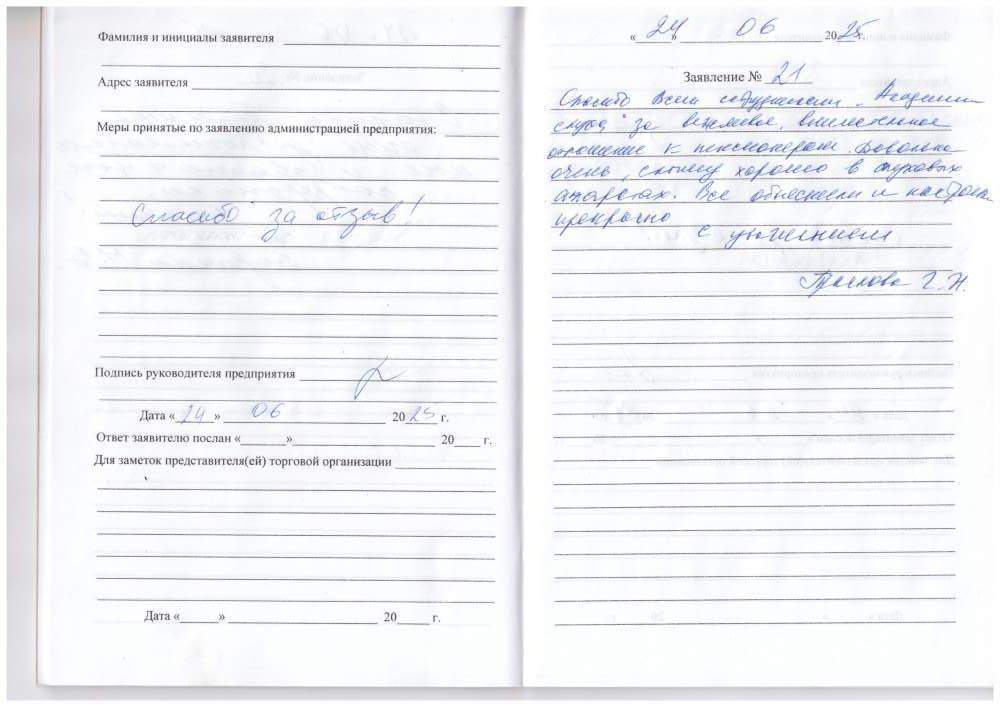 Фамилия и инициалы заявителя
Адрес заявителя
Меры принятые по заявлению администрацией предприятия:
Спасибо за отзыв!
Подпись руководителя предприятия
Дата «24» 06 2025 г.
Ответ заявителю послан «    »    20    г.
Для заметок представителя(ей) торговой организации
Дата «    »    20    г.
«24» 06 2025г.
Заявление № 21
Спасибо всем сотрудникам "Академии
слуха" за вежливое, внимательное
отношение к пенсионерам. Довольна
очень, слышу хорошо в слуховых
аппаратах. Все объяснили и настроили
прекрасно
С уважением
Г. Н.